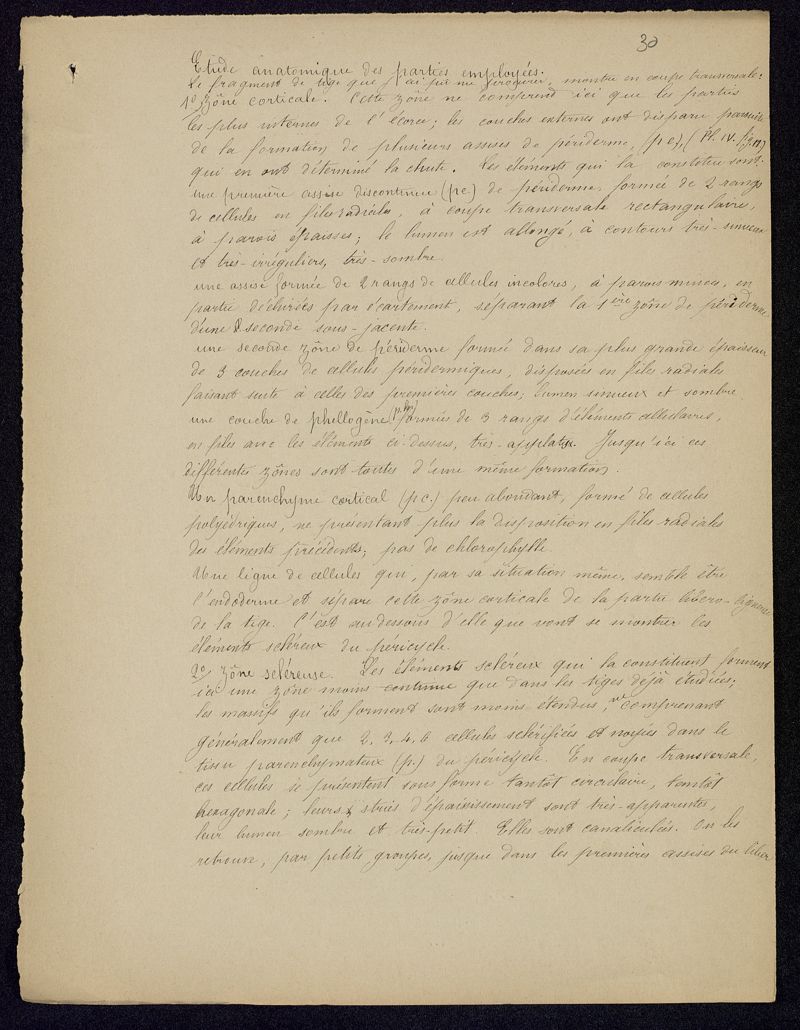 30
Etude anatomique des parties employées.
Le fragment de tige que j'ai pu me procurer, montre en coupe transversale:
1º zône corticale. Cette zône ne comprend ici que les parties
les plus internes de l'écorce; les couches externes ont disparu par suite
de la formation de plusieurs assises de périderme, (pe), (Pl. IV. fig.
qui en ont déterminé la chute. Les éléments qui la constituent sont:
une première assise discontinue (pe) de périderme, formée de 2 rangs
de cellules en files radiales, à coupe transversale rectangulaire,
à parois épaisses; le lumen est allongé, à contours très-sinueux
et très-irréguliers, très-sombre.
une assise formée de 2 rangs de cellules incolores, à parois minces, en
partie déchirées par écartement, séparant la 1ère zône de périderme
d'une seconde sous-jacente.
une seconde zône de périderme formée dans sa plus grande épaisseur
de 3 couches de cellules péridermiques, disposées en files radiales
faisant suite à celles des premières couches; lumen sinueux et sombre.
une couche de phellogène (phg) formée de 3 rangs d'éléments cellulaires,
en files avec les éléments ci-dessus, très-applatis. Jusqu'ici ces
différentes zônes sont toutes d'une même formation.
Un parenchyme cortical (pc.) peu abondant, formé de cellules
polyédriques, ne présentant plus la disposition en files radiales
des éléments précédents; pas de chlorophylle.
Une ligne de cellules qui, par sa situation même, semble être
l'endoderme et sépare cette zône corticale de la partie libéro-ligneuse
de la tige. C'est au dessous d'elle que vont se montrer les
éléments scléreux du péricycle.
2º zône scléreuse. Les éléments scléreux qui la constituent forment
ici une zône moins continue que dans les tiges déjà étudiées;
les massifs qu'ils forment sont moins étendus, ne comprenant
généralement que 2, 3, 4, 6 cellules sclérifiées et noyées dans le
tissu parenchymateux (p.) du péricycle. En coupe transversale,
ces cellules se présentent sous forme tantôt circulaire, tantôt
hexagonale; leurs stries d'épaississement sont très-apparentes,
leur lumen sombre et très-petit. Elles sont canaliculées. On les
retrouve, par petits groupes, jusque dans les premières assises du liber